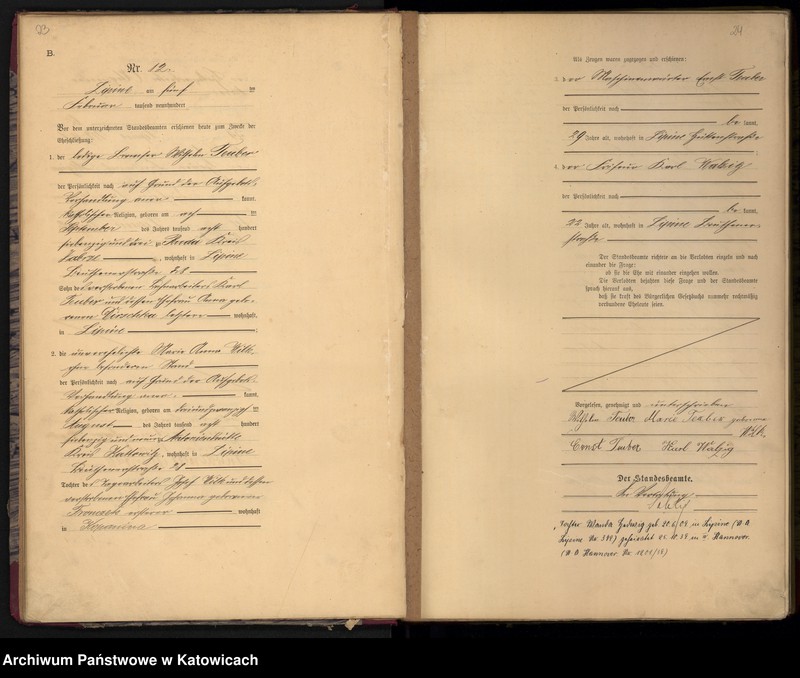 23
B.
Nr. 12.
Lipine am fünf ten
Februar tausend neunhundert
Vor dem unterzeichneten Standesbeamten erschienen heute zum Zwecke der
Eheschließung:
1. der ledige Wilhelm Teuber
der Persönlichkeit nach auf Grund der Aufgebots-
verhandlung aner- kannt,
katholischer Religion, geboren am ten
September des Jahres tausend acht hundert
siebenzig und drei Ruda Kreis
Zabrze, wohnhaft in Lipine
Beuthenerstraße
Sohn des verstorbenen Karl
Teuber und dessen Ehefrau Anna gebo-
renen letztere wohnhaft
in Lipine
2. die unverehelichte Marie Anna Wilk
ohne besonderen Stand
der Persönlichkeit nach auf Grund der Aufgebots-
verhandlung aner- kannt,
katholischer Religion, geboren am ten
August des Jahres tausend acht hundert
siebenzig und neun Antonienhütte
Kreis Kattowitz, wohnhaft in Lipine
Beuthenerstraße
Tochter des Josef Wilk und dessen
verstorbenen Ehefrau Johanna geborenen
ersterer wohnhaft
in Kopanina
24
Als Zeugen waren zugezogen und erschienen:
3. der Maschinenwärter Ernst Teuber
der Persönlichkeit nach
be kannt,
29 Jahre alt, wohnhaft in Lipine Hüttenstraße
4. der Friseur Karl Walzig
der Persönlichkeit nach
be kannt,
22 Jahre alt, wohnhaft in Lipine Beuthener-
straße
Der Standesbeamte richtete an die Verlobten einzeln und nach
einander die Frage:
ob sie die Ehe mit einander eingehen wollen.
Die Verlobten bejahten diese Frage und der Standesbeamte
sprach hierauf aus,
daß sie kraft des Bürgerlichen Gesetzbuchs nunmehr rechtmäßig
verbundene Eheleute seien.
Vorgelesen, genehmigt und unterschrieben
Wilhelm Teuber Marie Teuber geborene
Wilk.
Ernst Teuber Karl Walzig
Der Standesbeamte.
In Vertretung
Tochter Wanda Hedwig geb. in Lipine (St. A.
Lipine Nr. ) geheiratet in Hannover.
(St. A. Hannover Nr. )
Archiwum Państwowe w Katowicach